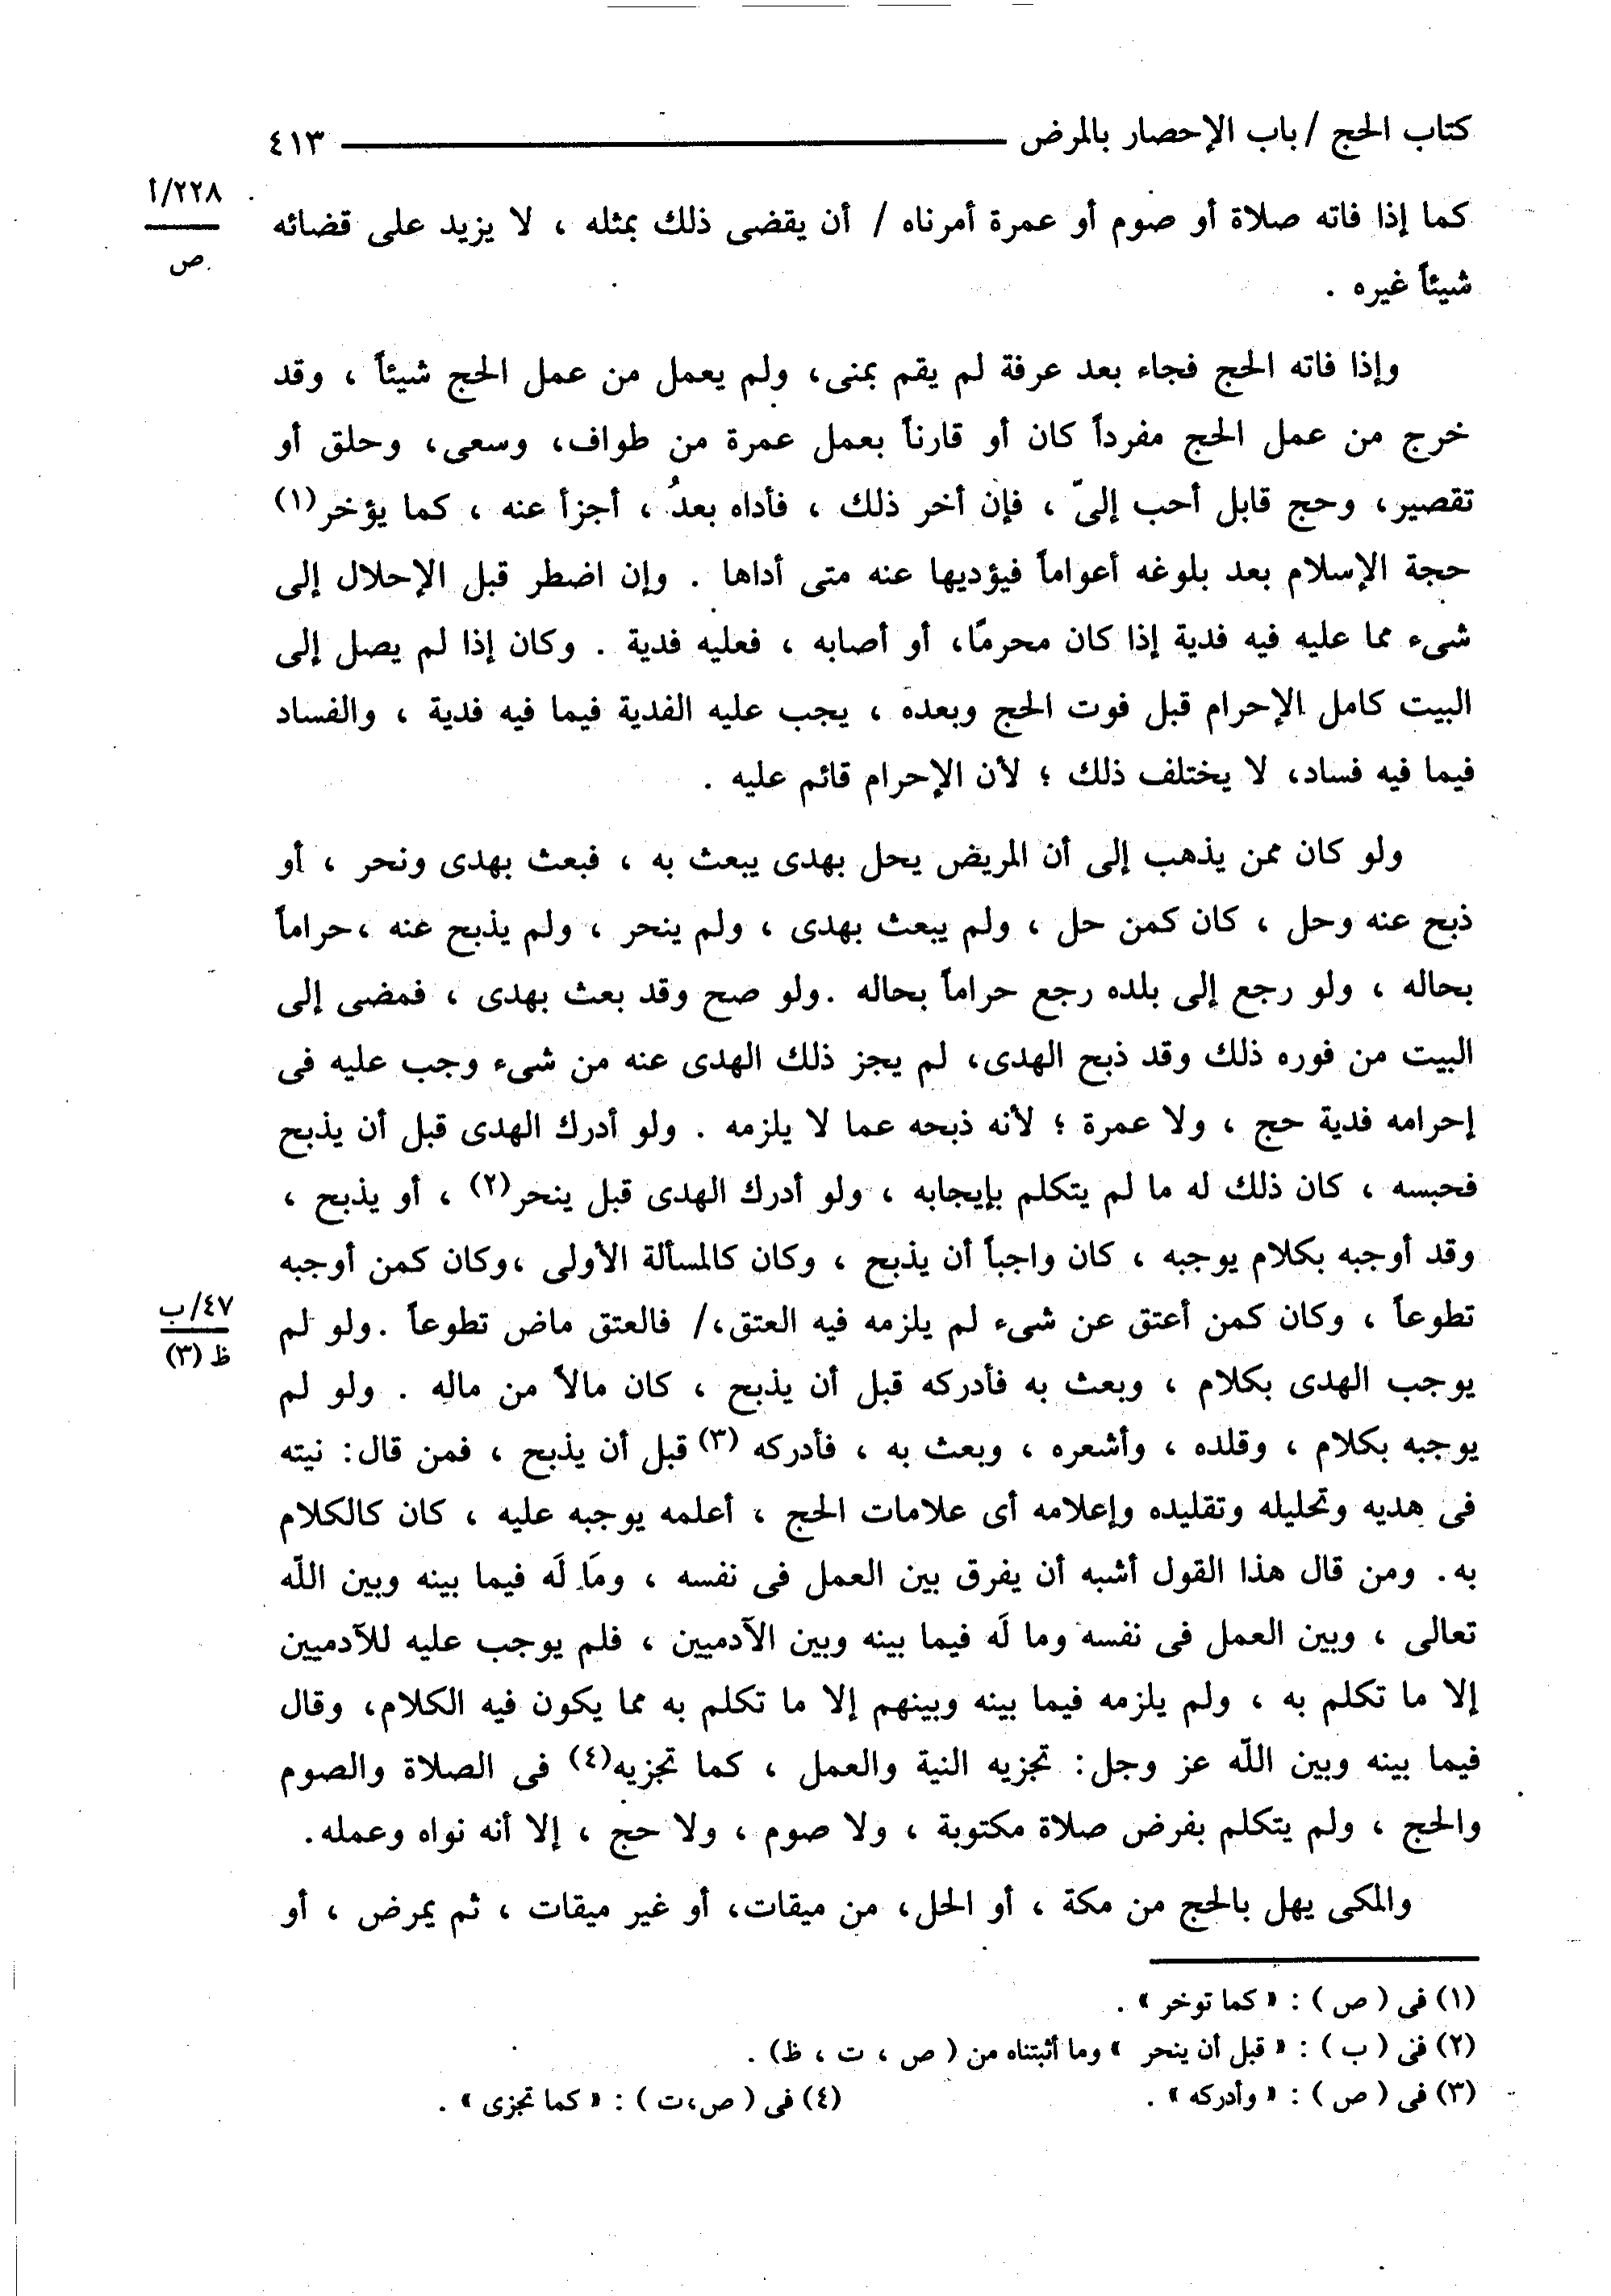 كتاب الحج / باب الإحصار بالمرض ٤١٣
٢٢٨/أ
ص
كما إذا فاته صلاة أو صوم أو عمرة أمرناه / أن يقضى ذلك بمثله ، لا يزيد على قضائه
شيئاً غيره .
وإذا فاته الحج فجاء بعد عرفة لم يقم بمنى، ولم يعمل من عمل الحج شيئاً ، وقد
خرج من عمل الحج مفرداً كان أو قارناً بعمل عمرة من طواف، وسعى، وحلق أو
تقصير، وحج قابل أحب إلىّ ، فإن أخر ذلك ، فأداه بعدُ ، أجزأ عنه ، كما يؤخر(١)
حجة الإسلام بعد بلوغه أعواماً فيؤديها عنه متى أداها . وإن اضطر قبل الإحلال إلى
شىء مما عليه فيه فدية إذا كان محرمًا، أو أصابه ، فعليه فدية . وكان إذا لم يصل إلى
البيت كامل الإحرام قبل فوت الحج وبعده ، يجب عليه الفدية فيما فيه فدية ، والفساد
فيما فيه فساد، لا يختلف ذلك ؛ لأن الإحرام قائم عليه .
ولو كان ممن يذهب إلى أن المريض يحل بهدى يبعث به ، فبعث بهدى ونحر ، أو
ذبح عنه وحل ، كان كمن حل ، ولم يبعث بهدى ، ولم ينحر ، ولم يذبح عنه ،حراماً
بحاله ، ولو رجع إلى بلده رجع حراماً بحاله .ولو صح وقد بعث بهدى ، فمضى إلى
البيت من فوره ذلك وقد ذبح الهدى، لم يجز ذلك الهدى عنه من شىء وجب عليه فى
إحرامه فدية حج ، ولا عمرة ؛ لأنه ذبحه عما لا يلزمه . ولو أدرك الهدى قبل أن يذبح
فحبسه ، كان ذلك له ما لم يتكلم بإيجابه ، ولو أدرك الهدى قبل ينحر(٢) ، أو يذبح ،
وقد أوجبه بكلام يوجبه ، كان واجباً أن يذبح ، وكان كالمسألة الأولى ،وكان كمن أوجبه
تطوعاً ، وكان كمن أعتق عن شىء لم يلزمه فيه العتق،/ فالعتق ماض تطوعاً .ولو لم
٤٧/ب
ظ (٣)
يوجب الهدى بكلام ، وبعث به فأدركه قبل أن يذبح ، كان مالاً من مالِه . ولو لم
يوجبه بكلام ، وقلده ، وأشعره ، وبعث به ، فأدركه (٣) قبل أن يذبح ، فمن قال: نيته
فى هديه وتحليله وتقليده وإعلامه أى علامات الحج ، أعلمه يوجبه عليه ، كان كالكلام
به. ومن قال هذا القول أشبه أن يفرق بين العمل فى نفسه ، ومَا لَه فيما بينه وبين اللّه
تعالى ، وبين العمل فى نفسه وما لَه فيما بينه وبين الآدميين ، فلم يوجب عليه للآدميين
إلا ما تكلم به ، ولم يلزمه فيما بينه وبينهم إلا ما تكلم به مما يكون فيه الكلام، وقال
فيما بينه وبين اللّه عز وجل: تجزيه النية والعمل ، كما تجزيه(٤) فى الصلاة والصوم
والحج ، ولم يتكلم بفرض صلاة مكتوبة ، ولا صوم ، ولا حج ، إلا أنه نواه وعمله.
والمكى يهل بالحج من مكة ، أو الحل، من ميقات، أو غير ميقات ، ثم يمرض ، أو
(١) فى ( ص ) : « كما توخر » .
(٢) فى ( ب ) : « قبل أن ينحر » وما أثبتناه من ( ص ، ت ، ظ) .
(٣) فى ( ص ) : « وأدركه » . (٤) فى ( ص،ت ) : « كما تجزى » .